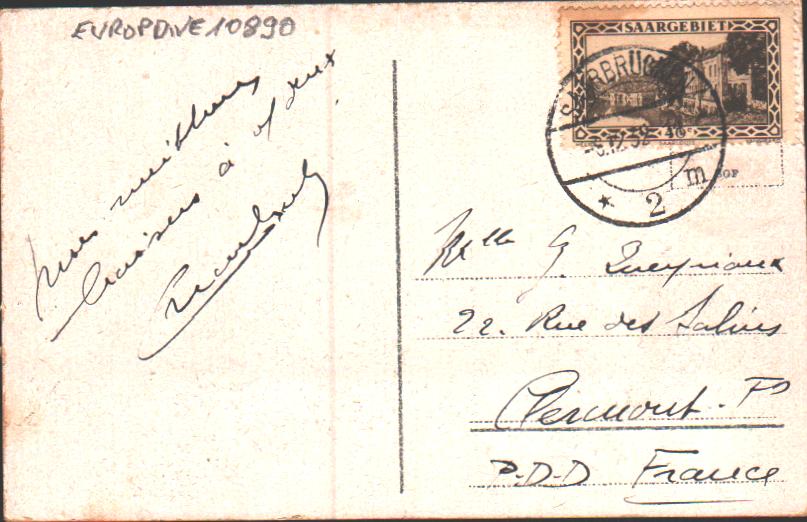 EVROPDIVE 10890
SAARGEBIET
SAARBRÜCKEN
-6.12.32
40c
* 2 m
Mes meilleurs
baisers à vous deux
Mlle G. Queyriaux
22. Rue des Salins
Clermont. Fd
P.D.D France